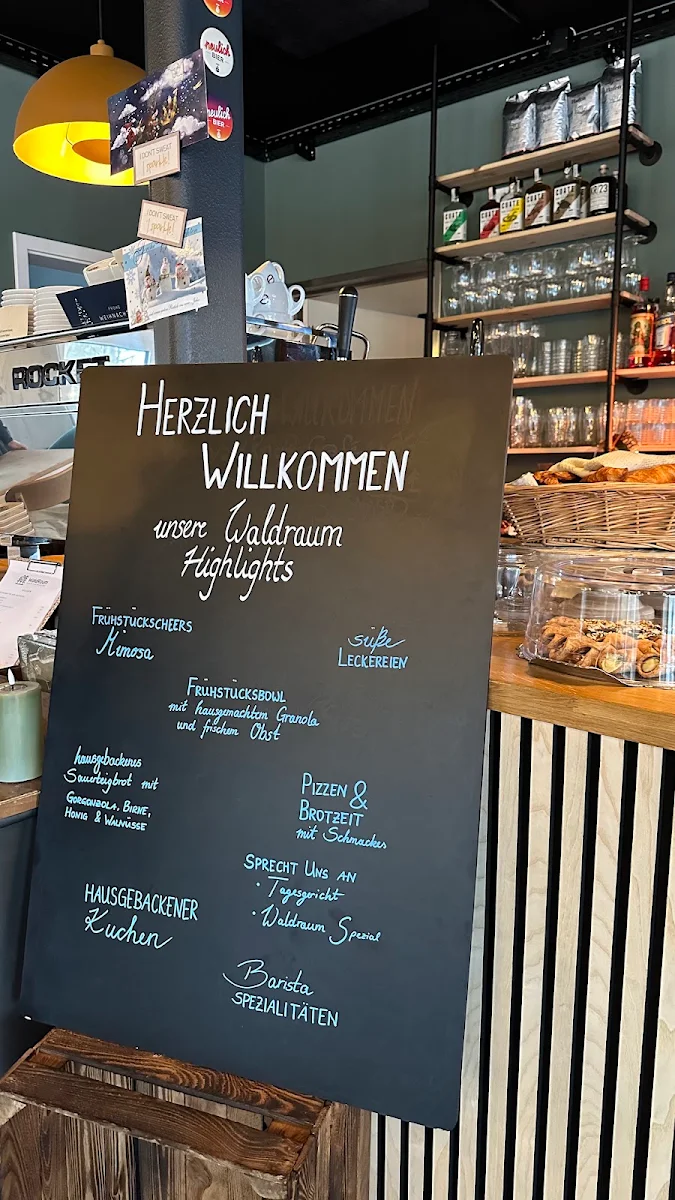 neulich
BIER
neulich
BIER
I DON'T SWEAT
I sparkle!
I DON'T SWEAT
I sparkle!
ROCKET
HERZLICH
WILLKOMMEN
unsere Waldraum
Highlights
FRÜHSTÜCKSCHEERS
Mimosa
süße
LECKEREIEN
FRÜHSTÜCKSBOWL
mit hausgemachtem Granola
und frischem Obst
hausgebackenes
Sauerteigbrot mit
GORGONZOLA, BIRNE,
HONIG & WALNÜSSE
PIZZEN &
BROTZEIT
mit Schmackes
SPRECHT UNS AN
· Tagesgericht
· Waldraum Spezial
HAUSGEBACKENER
Kuchen
Barista
SPEZIALITÄTEN